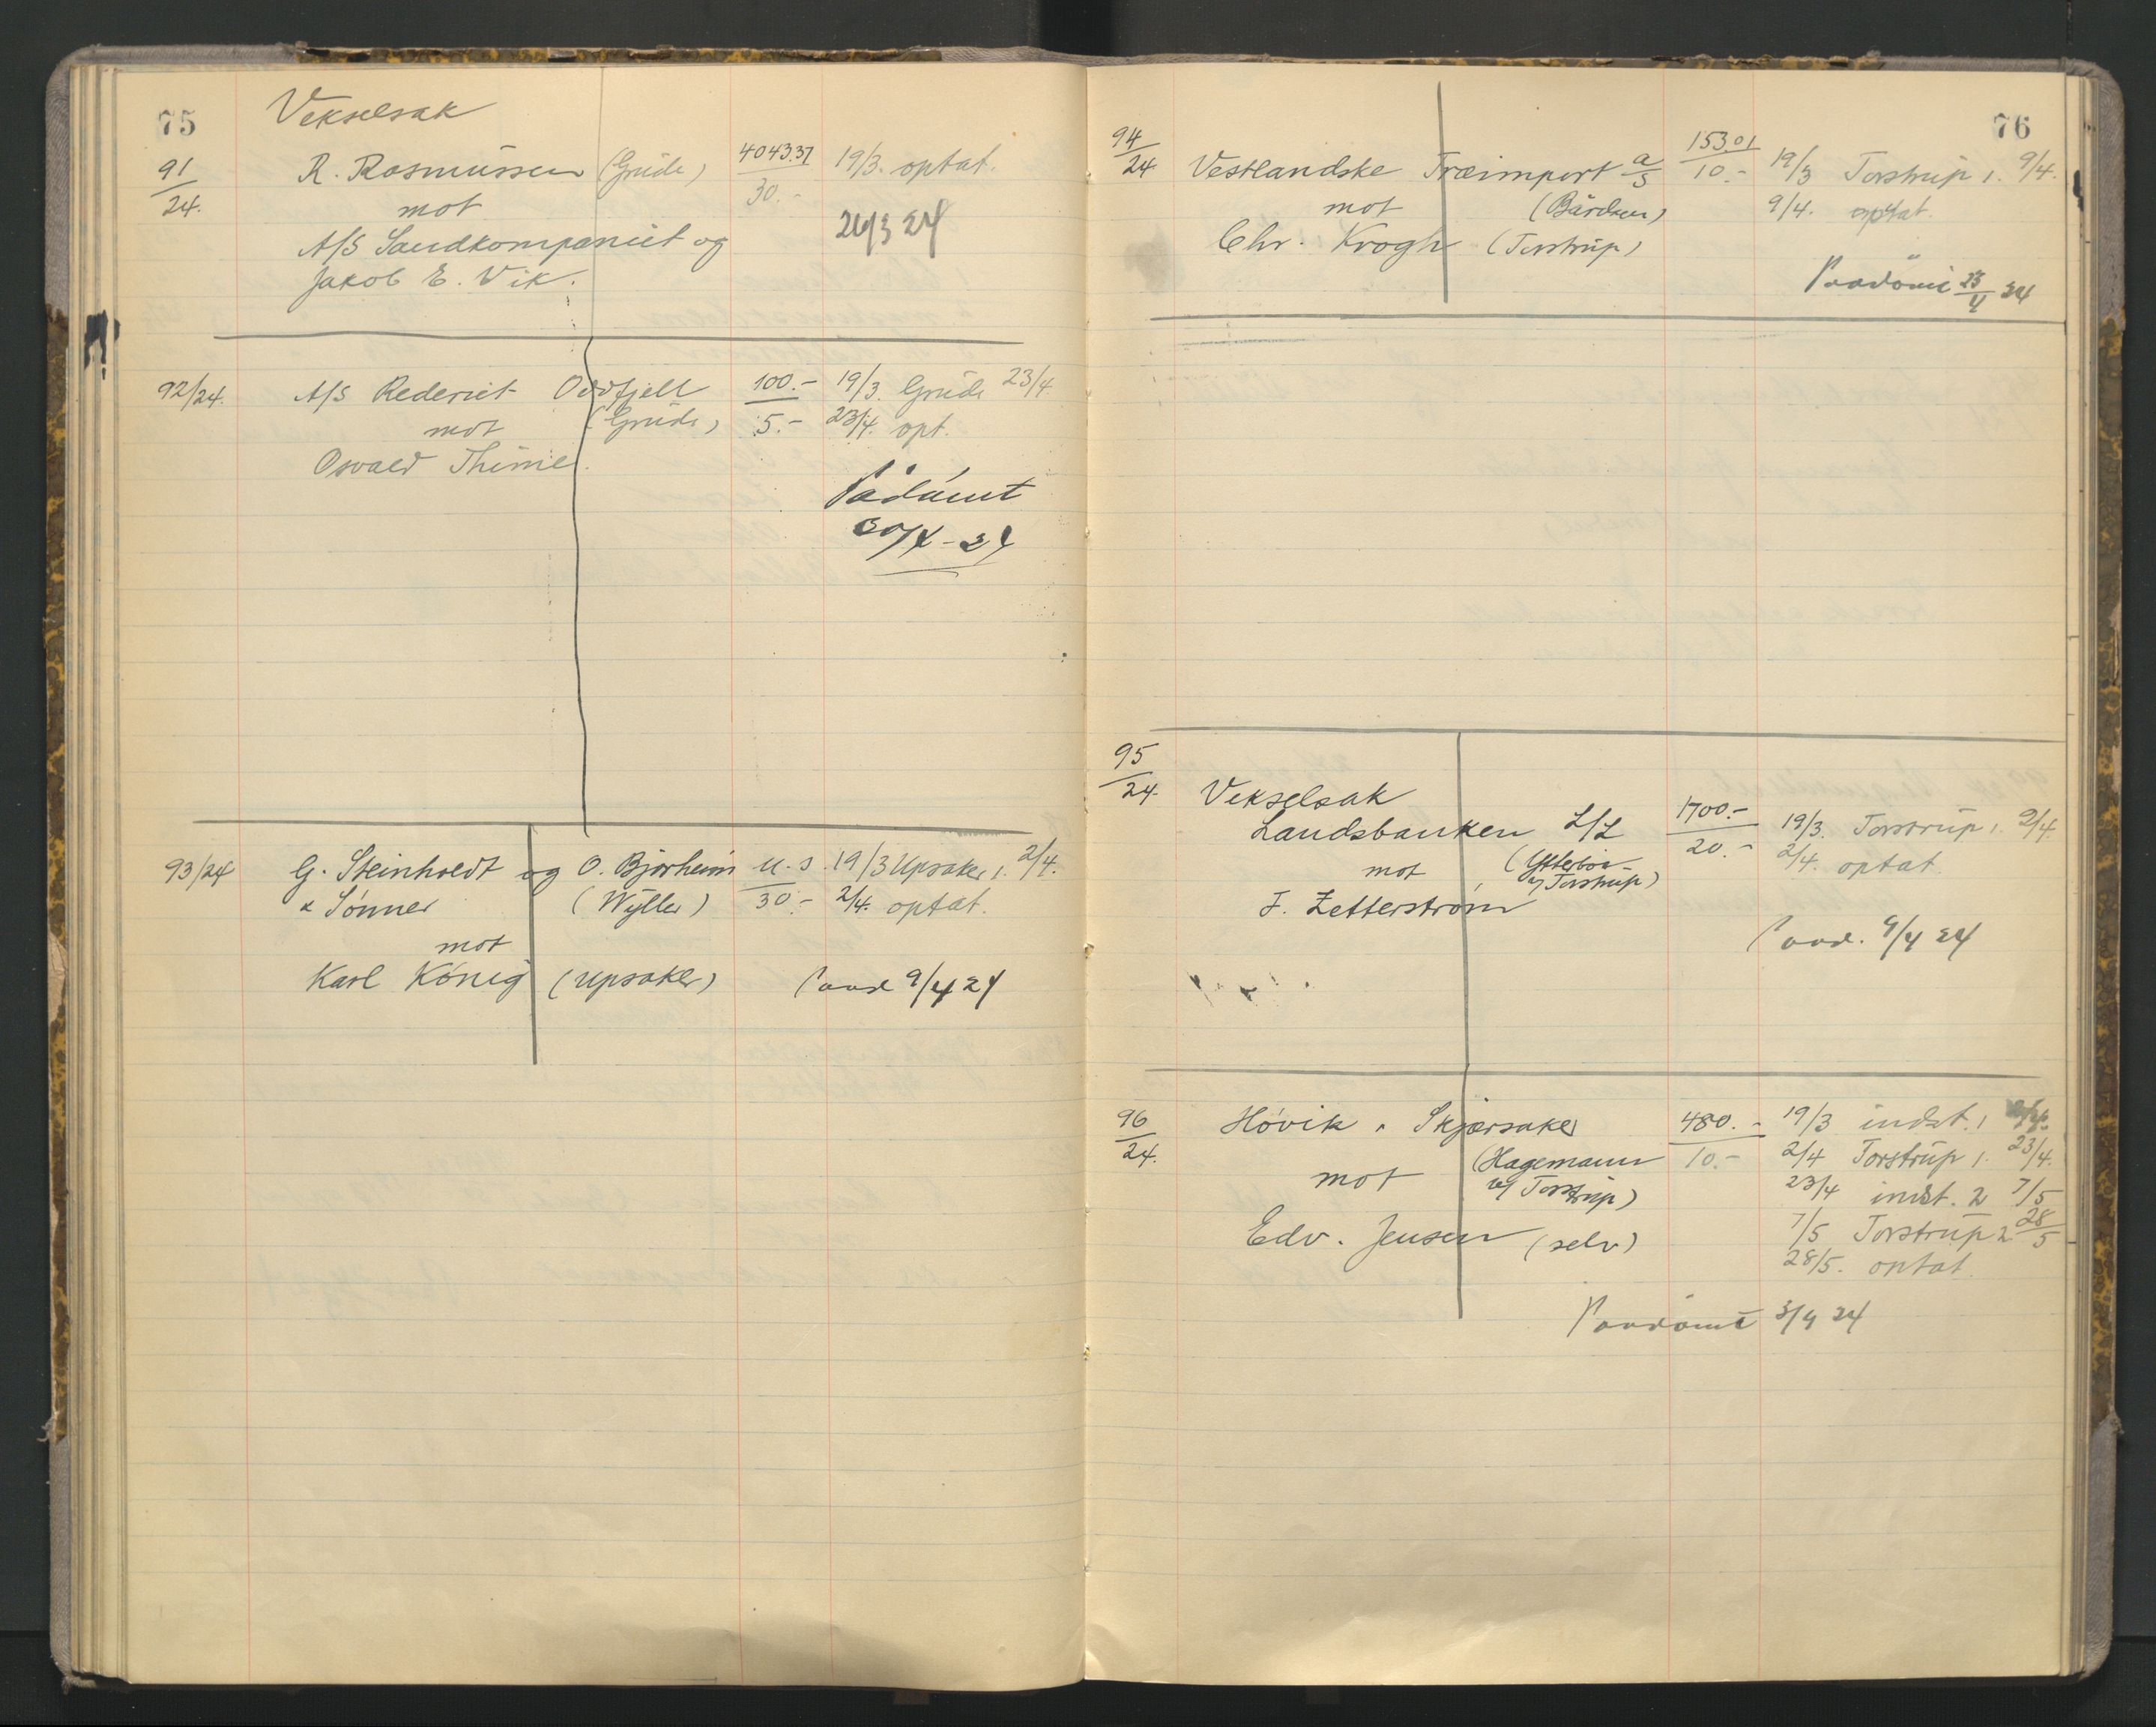 75
Vekselsak
91/24. R. Rasmussen (Grude) 4043.37 19/3. optat.
mot 30.-
A/S Sandkompaniet og 26/3 24
Jakob E. Vik.
92/24. A/S Rederiet Oddfjell 100.- 19/3. Grude 23/4
mot (Grude) 5.- 23/4. opt.
Osvald Thime.
Pådømt
30/4-24
93/24 G. Steinholdt og O. Bjørheim u.s. 19/3 Upsaker 1. 2/4.
& Sønner (Wyller) 30.- 2/4. optat.
mot
Karl König (Upsaker) Paad 9/4 24
76
94/24. Vestlandske Træimport a/s 153.01 19/3 Torstrup 1. 9/4.
mot (Bårdsen) 10.- 9/4. optat.
Chr. Krogh (Torstrup)
Paadömt 23/4 24
95/24.
Vekselsak
Landsbanken L/L 1700.- 19/3. Torstrup 1. 2/4.
mot (Ytterbøe 20.- 2/4. optat.
v/ Torstrup)
F. Zetterstrøm
Paad. 9/4 24
96/24. Hövik & Skjærsaker 480.- 19/3 indst. 1
(Hagemann 10.- 2/4 Torstrup 1. 23/4.
mot v/ Torstrup) 23/4 indst. 2 7/5
Edv. Jensen (selv) 7/5 Torstrup 2 28/5
28/5. optat.
Paadömt 3/4 24